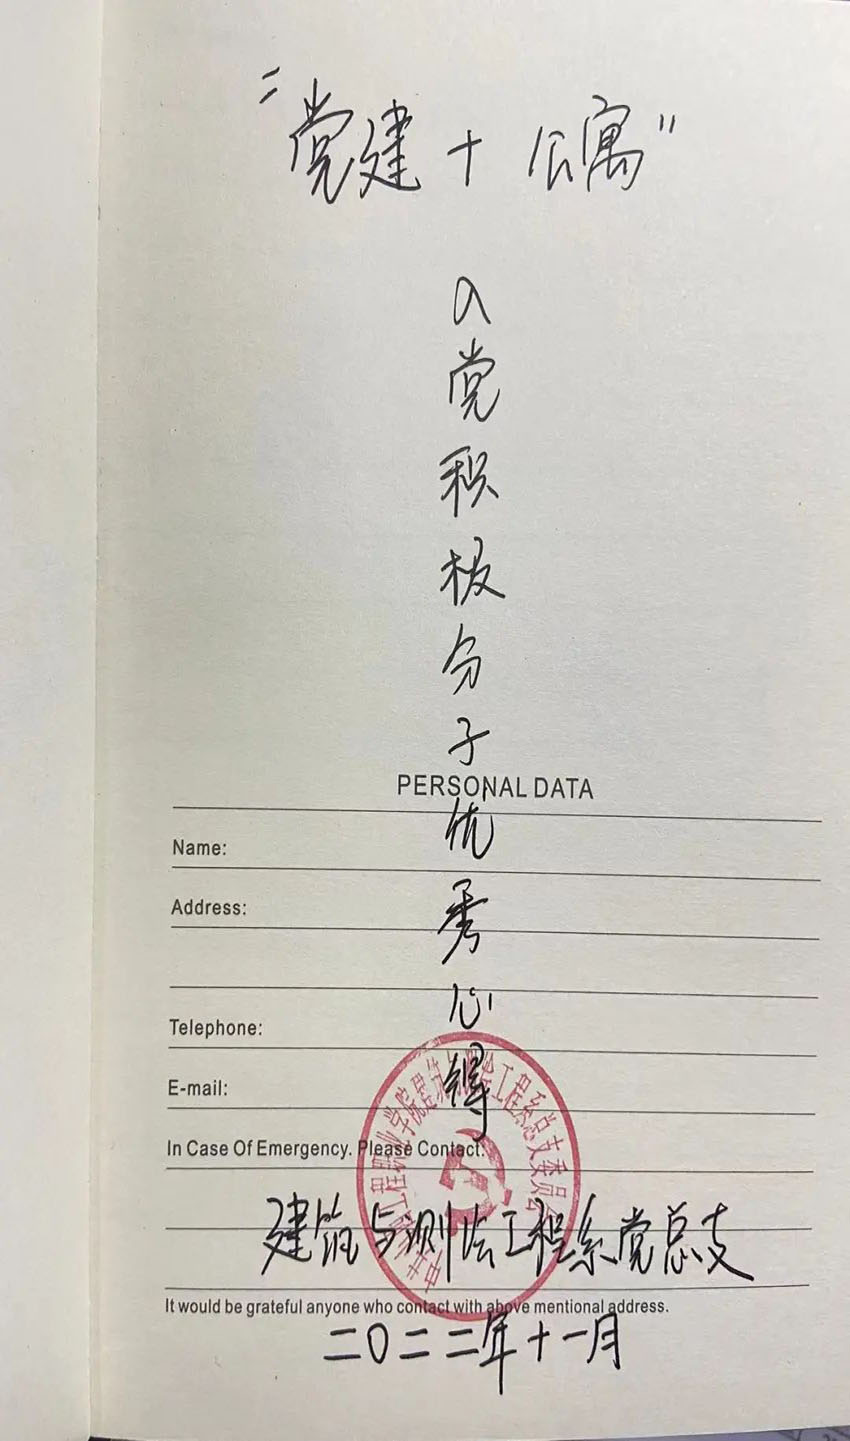 “党建+公寓”
入党积极分子优秀心得
PERSONAL DATA
Name:
Address:
Telephone:
E-mail:
In Case Of Emergency. Please Contact:
建筑与测绘工程系党总支
It would be grateful anyone who contact with above mentional address.
二〇二二年十一月